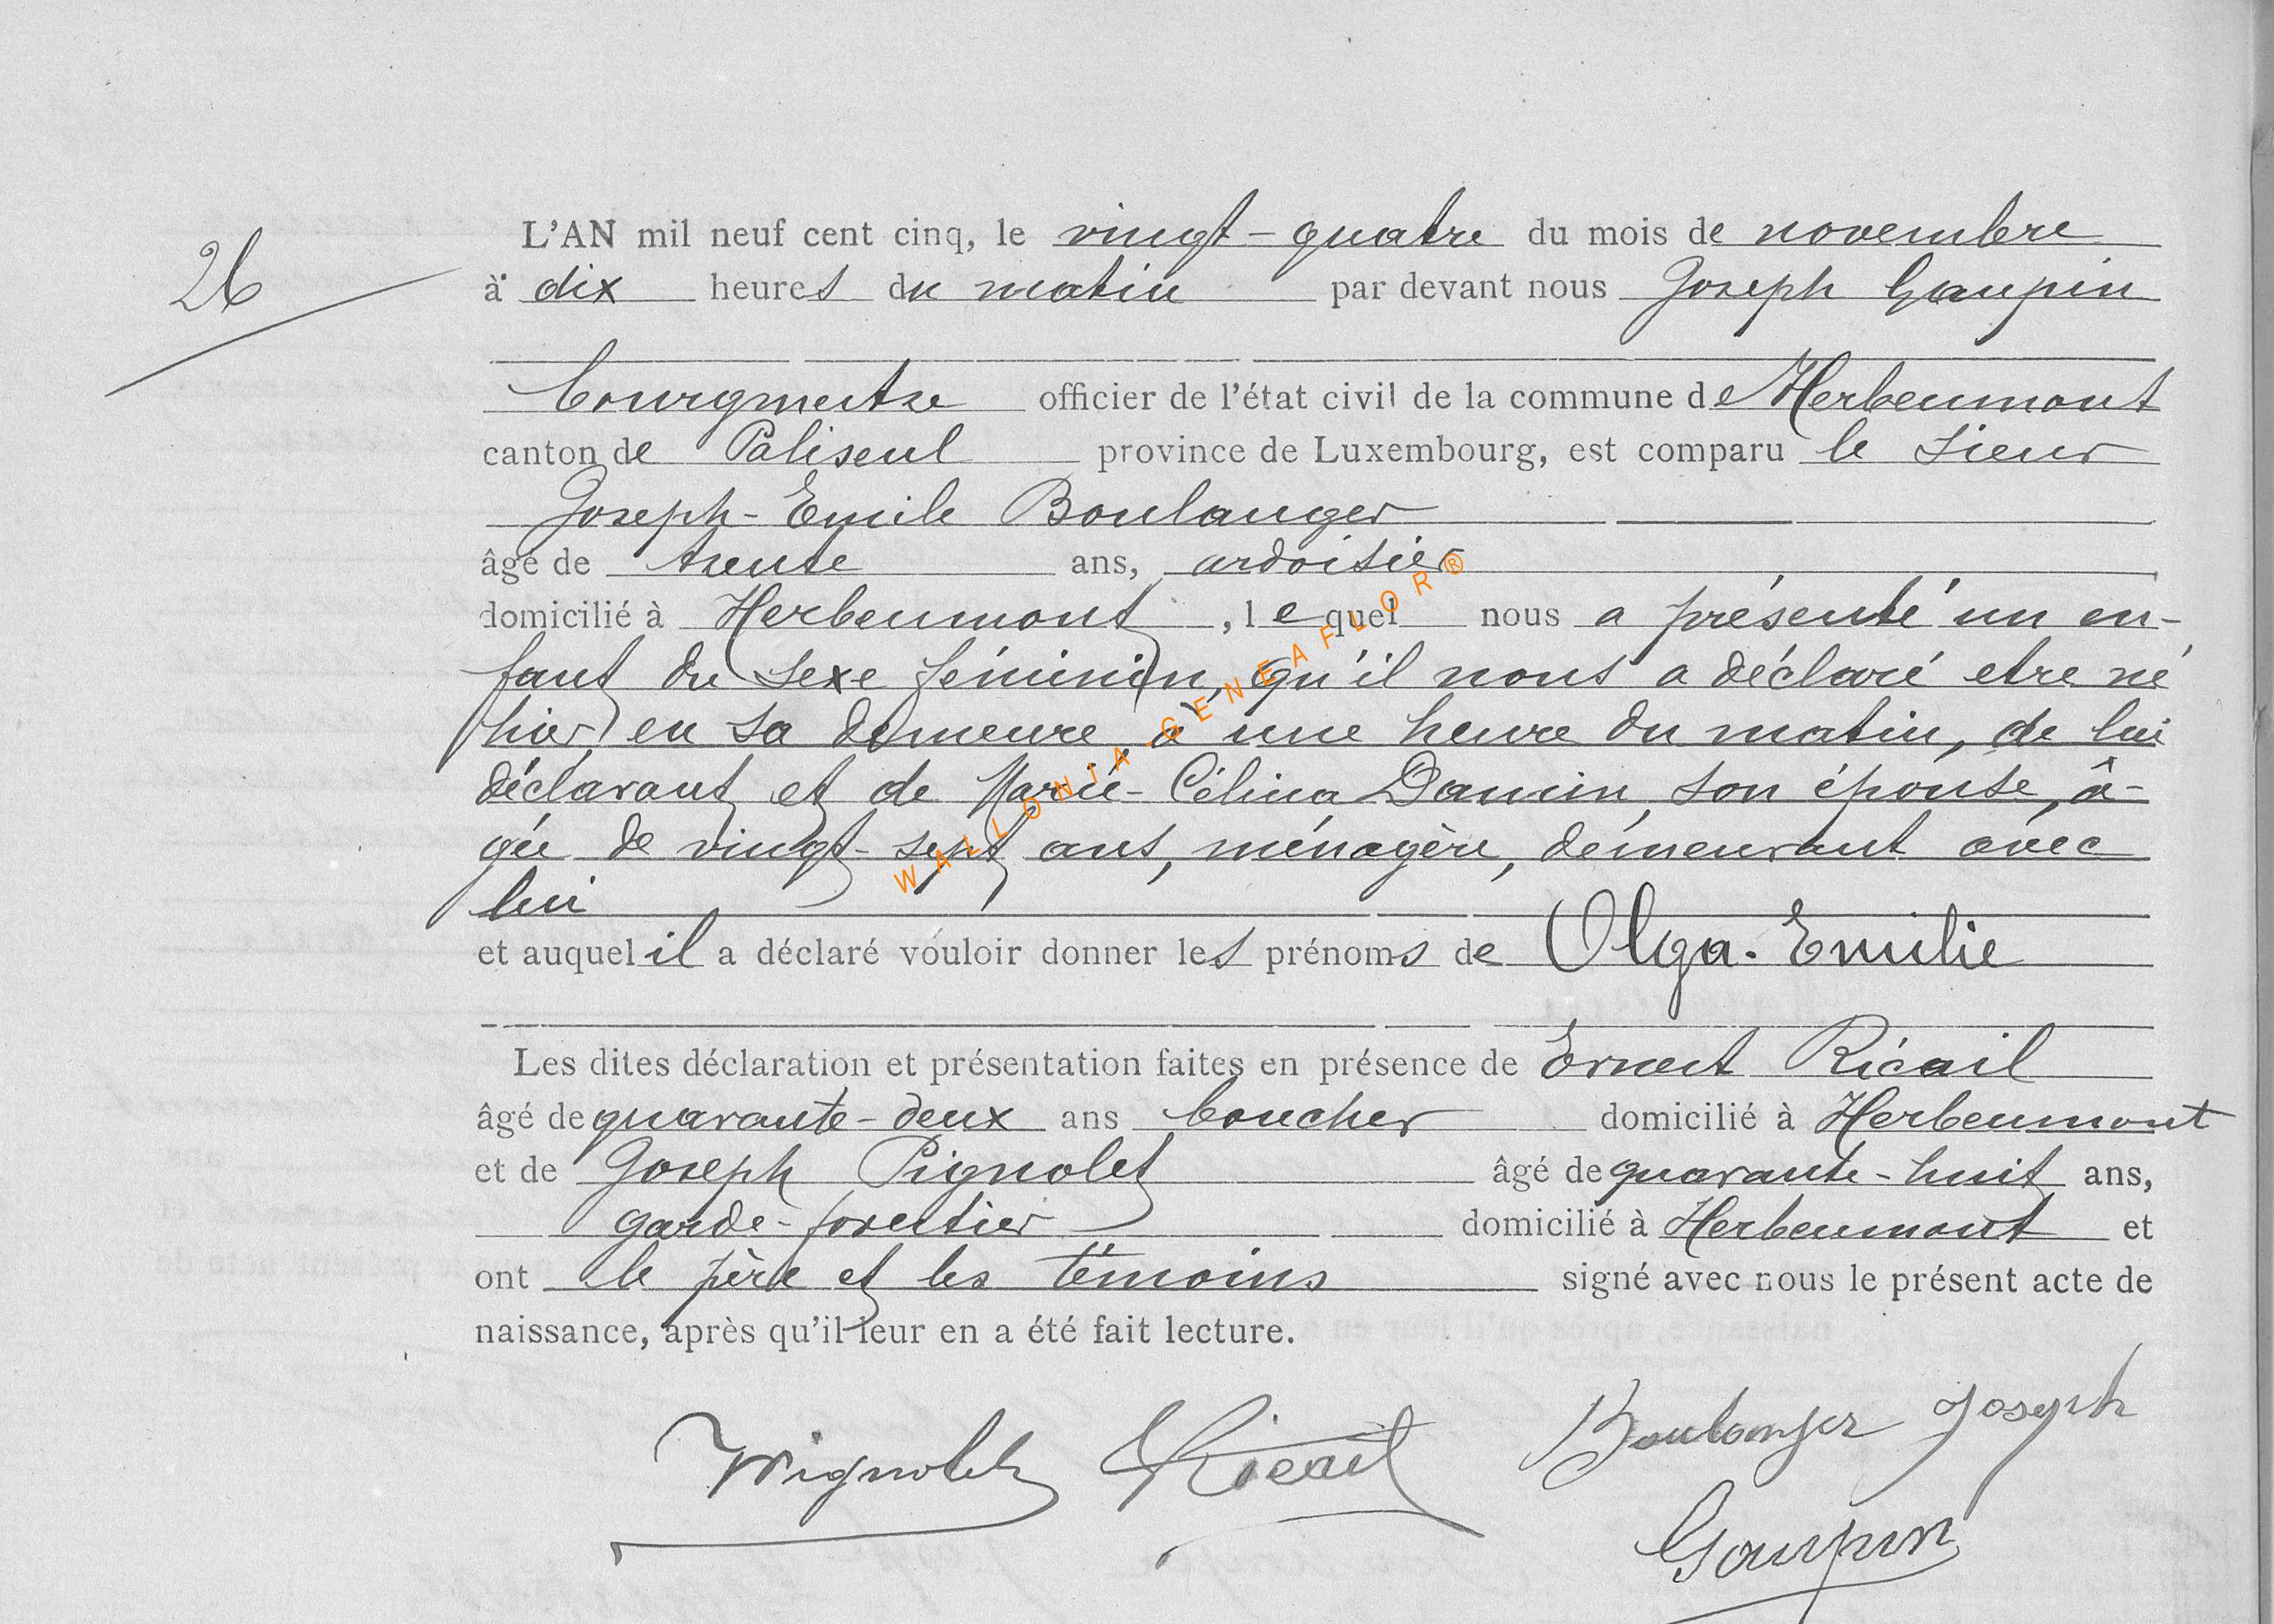 26
L'AN mil neuf cent cinq, le vingt-quatre du mois de novembre
à dix heures du matin par devant nous Joseph Gaupin
bourgmestre officier de l'état civil de la commune de Herbeumont
canton de Paliseul province de Luxembourg, est comparu le sieur
Joseph-Emile Boulanger
âgé de trente ans, ardoisier
domicilié à Herbeumont, lequel nous a présenté un en-
fant du sexe féminin, qu'il nous a déclaré etre né
hier, en sa demeure, à une heure du matin, de lui
déclarant et de Marie-Célina Damin, son épouse, â-
gée de vingt-sept ans, ménagère, demeurant avec
lui
et auquel il a déclaré vouloir donner les prénoms de Olga-Emilie
Les dites déclaration et présentation faites en présence de Ernest Ricail
âgé de quarante-deux ans boucher domicilié à Herbeumont
et de Joseph Pignolet âgé de quarante-huit ans,
garde-forestier domicilié à Herbeumont et
ont le père et les témoins signé avec nous le présent acte de
naissance, après qu'il leur en a été fait lecture.
Pignolet Ricail Boulanger Joseph
Gaupin
WALLONIA GENEAFLOR®